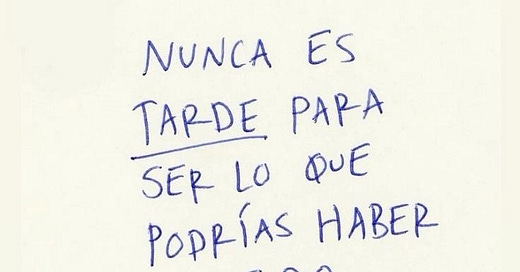 NUNCA ES
TARDE PARA
SER LO QUE
PODRÍAS HABER